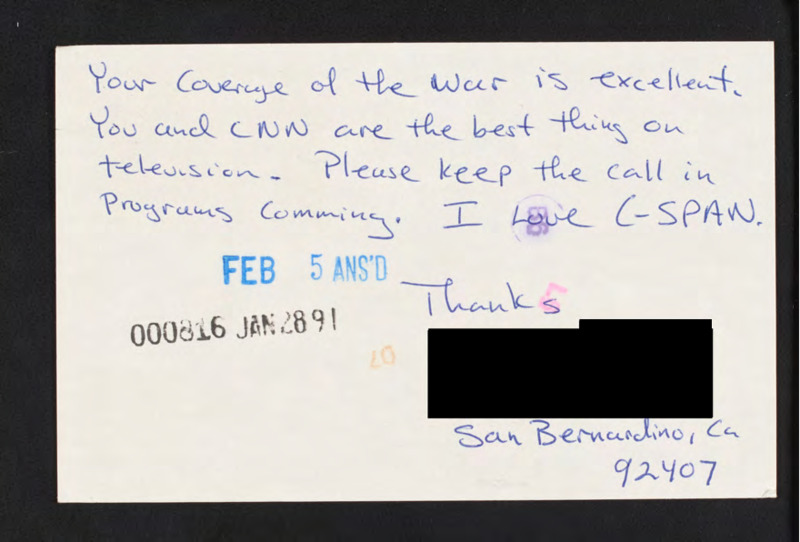 Your Coverage of the War is excellent.
You and CNN are the best thing on
television. Please keep the call in
Programs Comming. I Love C-SPAN.
FEB 5 ANS'D
Thanks
000816 JAN 28 91
07
San Bernardino, Ca
92407